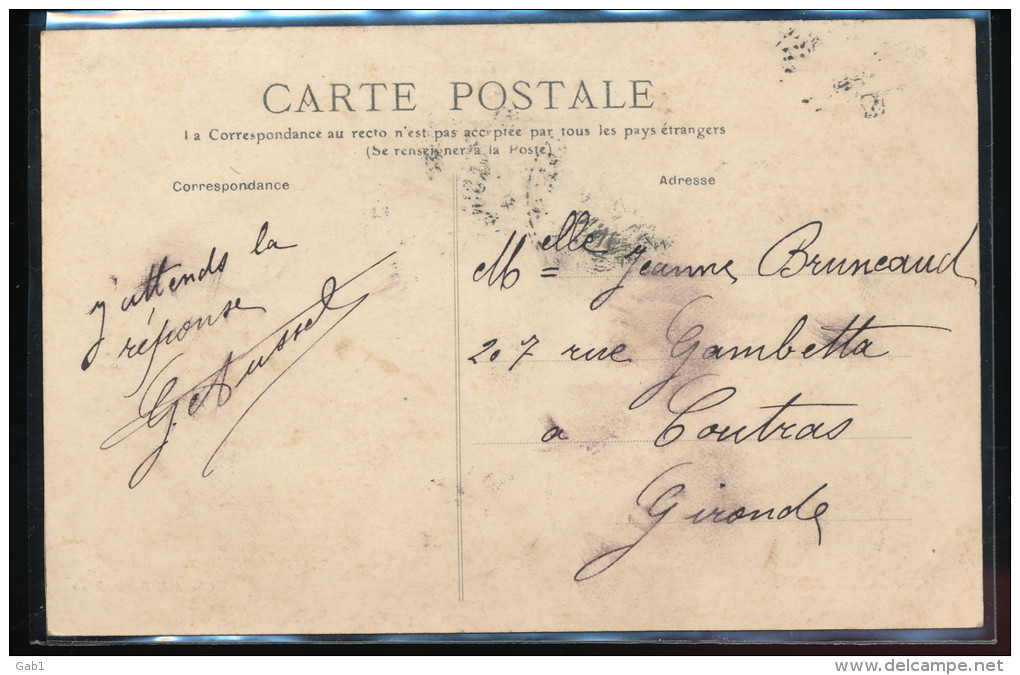 CARTE POSTALE
La Correspondance au recto n'est pas acceptée par tous les pays étrangers
(Se renseigner à la Poste)
Correspondance
Adresse
j'attends la
réponse
Melle Jeanne Bruneaud
207 rue Gambetta
a Coutras
Gironde
Gab1
www.delcampe.net